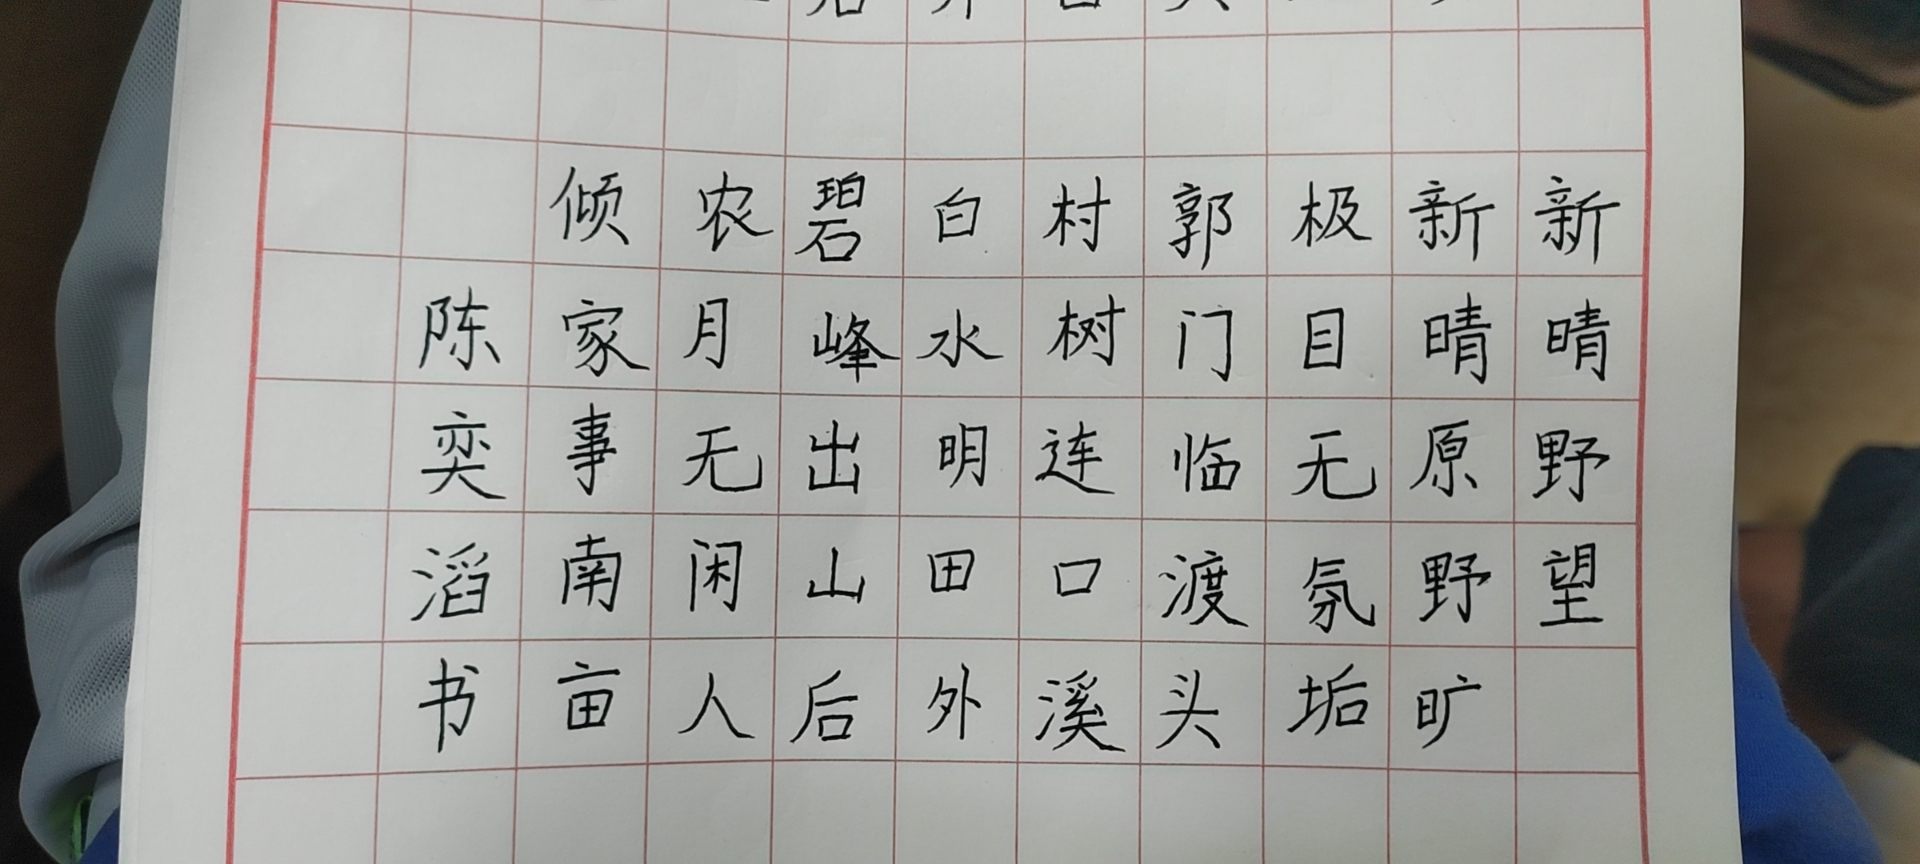 新晴野望
新晴原野旷
极目无氛垢
郭门临渡头
村树连溪口
白水明田外
碧峰出山后
农月无闲人
倾家事南亩
陈奕滔书